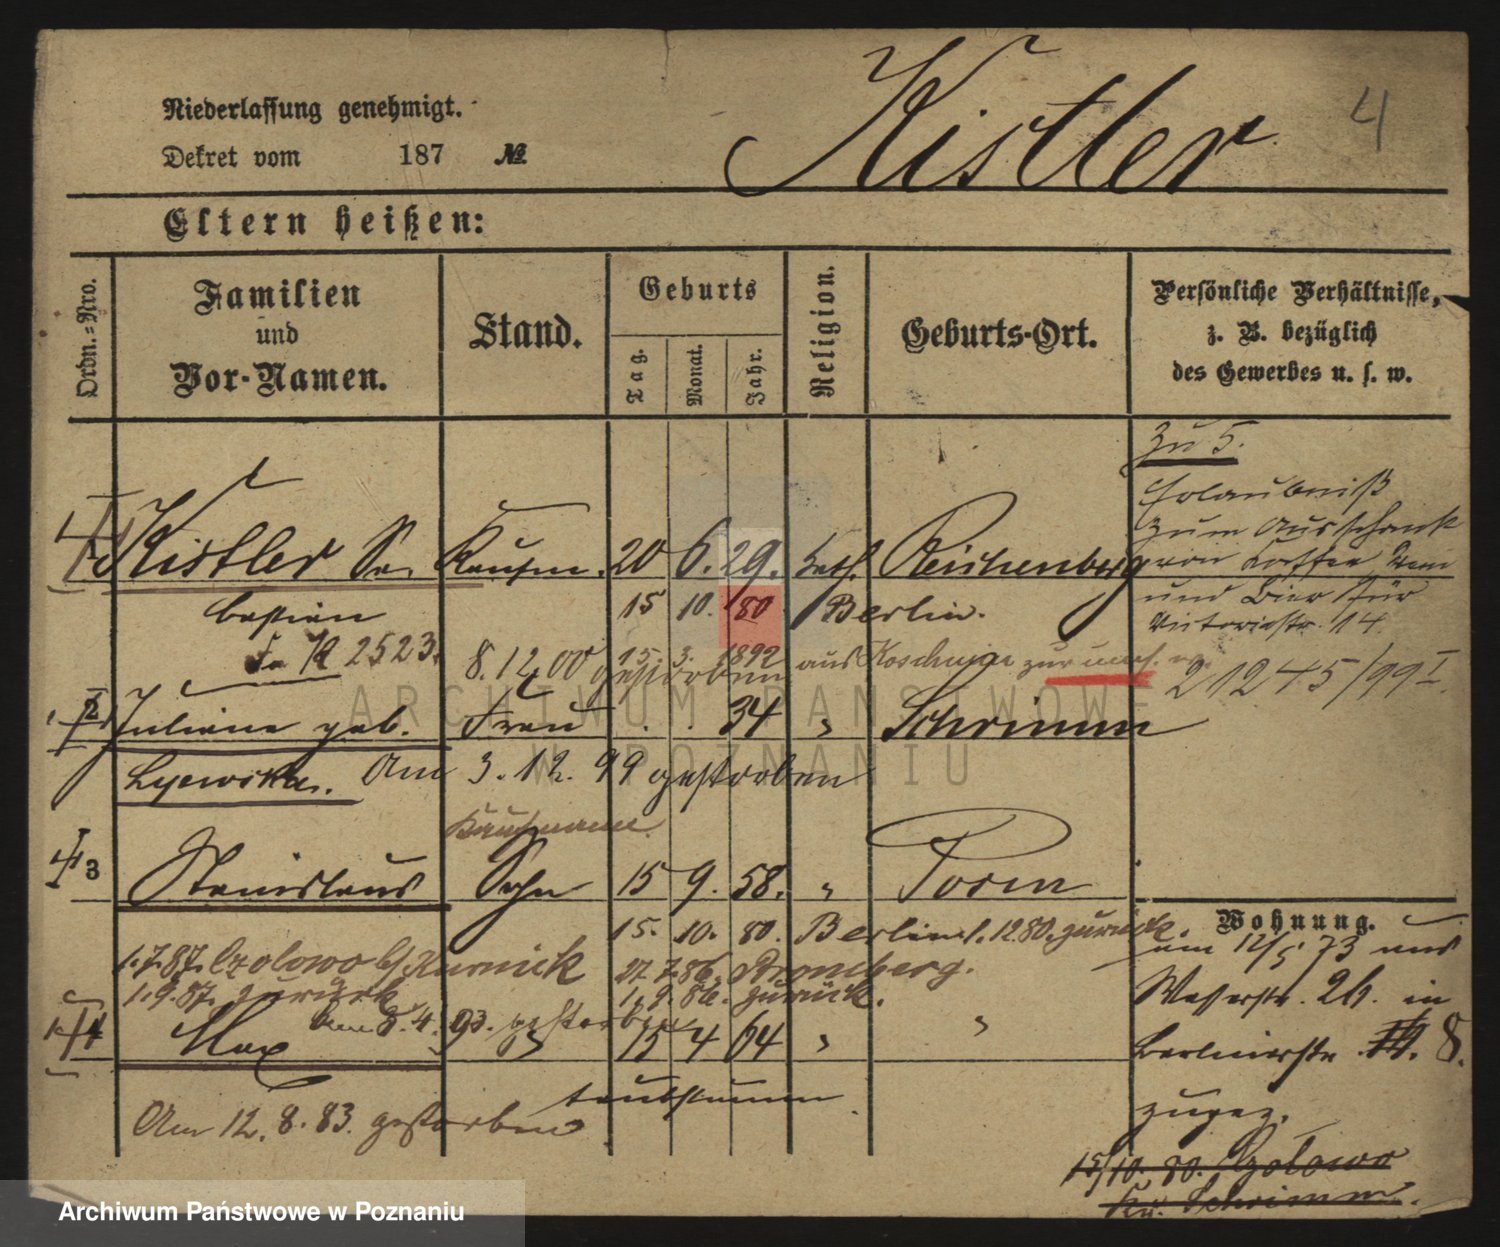 Niederlassung genehmigt.
Dekret vom 187 №
Kistler
4
Eltern heißen:
Ordn.=Nro.
Familien
und
Vor-Namen.
Stand.
Geburts
Tag.
Monat.
Jahr.
Religion.
Geburts-Ort.
Persönliche Verhältnisse,
z. B. bezüglich
des Gewerbes u. s. w.
zu 5.
Erlaubniß
zum Ausschank
von Kaffee Wein
und Bier für
Victoriastr. 14.
21245/99 I.
1 Kistler Se- Kaufm. 20 6. 29. kath. Reichenberg
bastian 15 10. 80. Berlin.
2523. 8.12.00 gestorben 15. 3. 1892 aus Koschmin
2 Juliane geb. Frau 34 " Schrimm
Am 3.12.99 gestorben
Kaufmann
3 Stanislaus Sohn 15 9. 58. " Posen
15. 10. 80. Berlin 1.12.80. zurück.
1.7.87. Czolowo b/Kurnick 27.7.86. Bromberg.
1.9.87. zurück 1.9.86. zurück.
am 8.4.93. gestorben
4 Max 15 4 64 " "
taubstumm
Am 12.8.83. gestorben
Wohnung.
am 12/5 73 aus
Wasserstr. 26. in
Berlinerstr. 8.
zugez.
15/10. 80. Czolowo
Kr. Schrimm.
ARCHIWUM PAŃSTWOWE
W POZNANIU
Archiwum Państwowe w Poznaniu